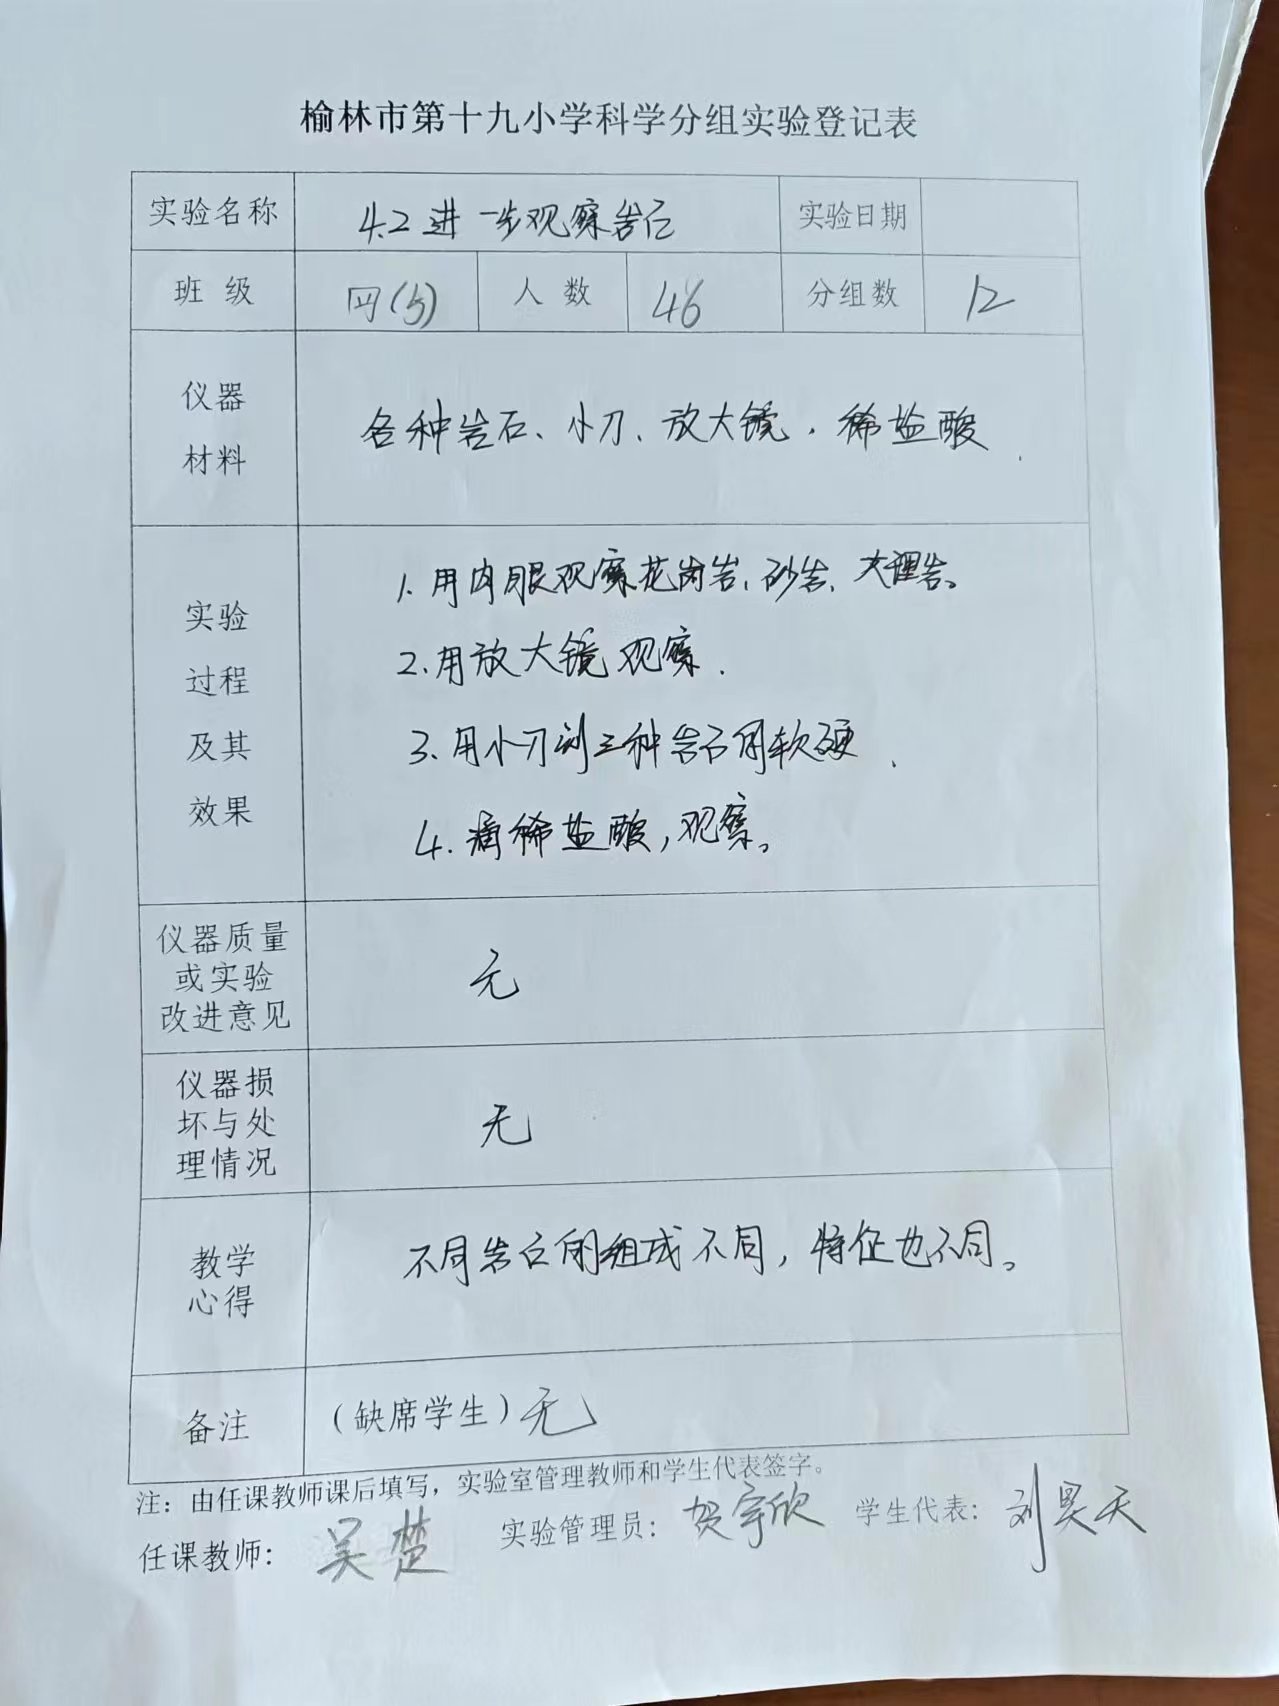 榆林市第十九小学科学分组实验登记表
实验名称 4.2进一步观察岩石 实验日期
班级 四(5) 人数 46 分组数 12
仪器
材料
各种岩石、小刀、放大镜、稀盐酸.
实验
过程
及其
效果
1.用肉眼观察花岗岩、砂岩、大理岩。
2.用放大镜观察.
3.用小刀刻三种岩石的软硬.
4.滴稀盐酸,观察。
仪器质量
或实验
改进意见
无
仪器损
坏与处
理情况
无
教学
心得
不同岩石的组成不同,特征也不同。
备注 (缺席学生)无
注：由任课教师课后填写，实验室管理教师和学生代表签字。
任课教师: 吴楚 实验管理员: 贺宇欣 学生代表: 刘昊天